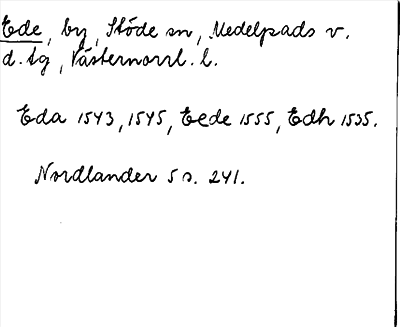 Ede, by, Stöde sn, Medelpads v.
d. tg, Västernorrl. l.
Eda 1543, 1545, Eede 1555, Edh 1535.
Nordlander 5 s. 241.